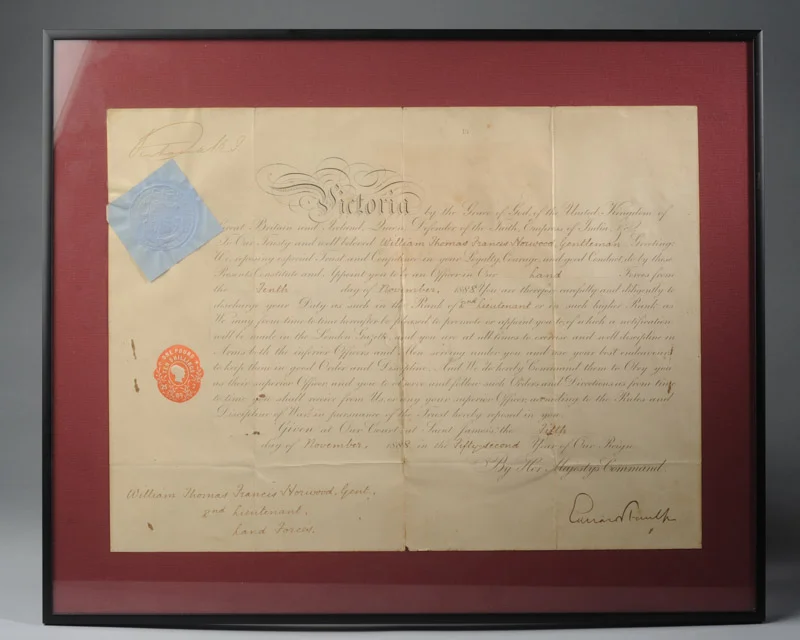 Victoria R I
Victoria by the Grace of God, of the United Kingdom of
Great Britain and Ireland, Queen, Defender of the Faith, Empress of India, &c.
To Our Trusty and well beloved William Thomas Francis Horwood, Gentleman, Greeting.
We, reposing especial Trust and Confidence in your Loyalty, Courage, and good Conduct, do by these
Presents Constitute and Appoint you to be an Officer in Our Land Forces from
the Tenth day of November, 1888 You are therefore carefully and diligently to
discharge your Duty as such in the Rank of 2nd Lieutenant or in such higher Rank as
We may from time to time hereafter be pleased to promote or appoint you to, of which a notification
will be made in the London Gazette, and you are at all times to exercise and well discipline in
Arms both the inferior Officers and Men serving under you and use your best endeavours
to keep them in good Order and Discipline. And We do hereby Command them to Obey you
as their superior Officer and you to observe and follow such Orders and Directions as from time
to time you shall receive from Us, or any your superior Officer, according to the Rules and
Discipline of War, in pursuance of the Trust hereby reposed in you.
Given at Our Court, at Saint James's, the
day of November, 1888 in the Fifty-second Year of Our Reign
By Her Majesty's Command
ONE POUND
TEN SHILLINGS
William Thomas Francis Horwood, Gent.,
2nd Lieutenant,
Land Forces.